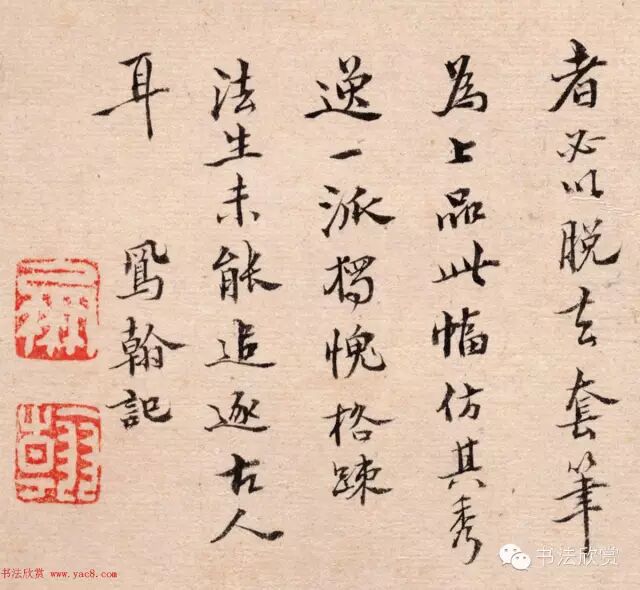 者必以脱去套筆
為上品此幅仿其秀
逸一派獨愧格踈
法生未能追逐古人
耳
鳳翰記
书法欣赏 www.yac8.com
书法欣赏